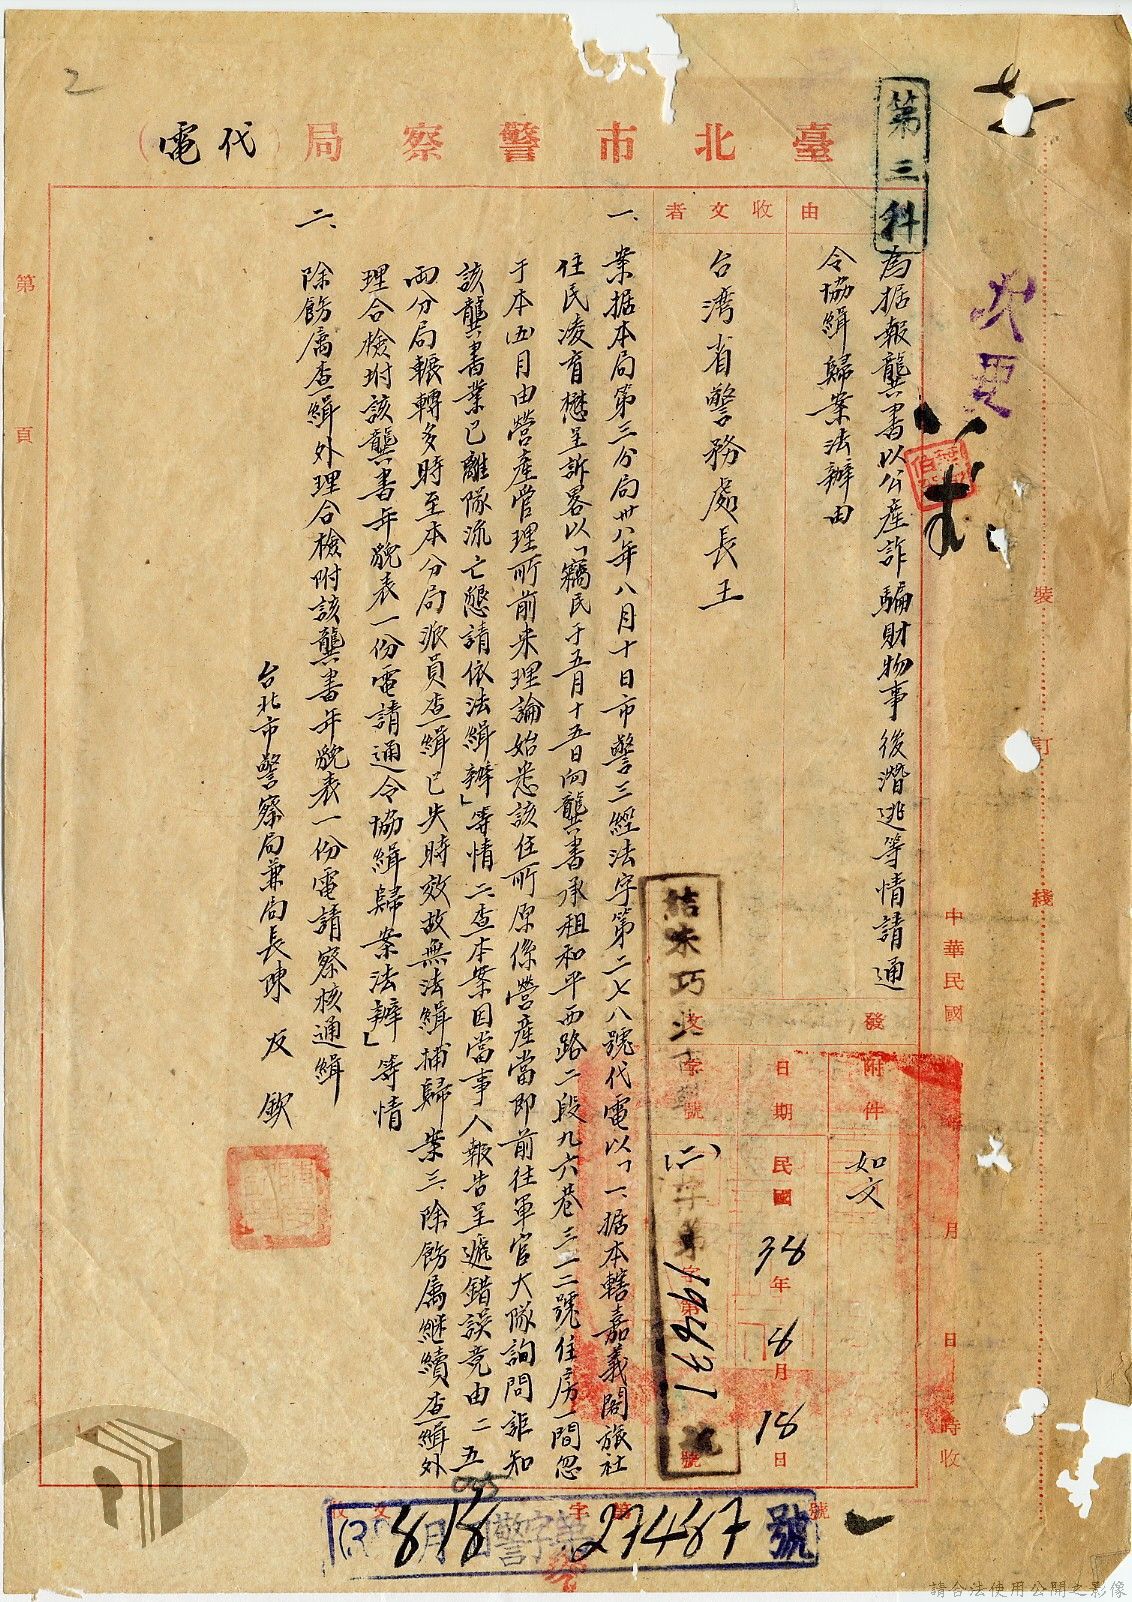 2
臺北市警察局(代電)
第三科
由
為据報龔書以公產詐騙財物事後潛逃等情請通
令協緝歸案法辦由
收文者
台湾省警務處長王
發
附件
如文
日期
民國38年8月18日
字號
(二)字第19671號
一、案据本局第三分局卅八年八月十日市警三經法字第二七八號代電以「一、据本轄嘉義閣旅社
住民凌育懋呈訴畧以「竊民于五月十五日向龔書承租和平西路二段九六巷三一二號住房一間忽
于本(五)月由營產管理所前来理論始悉該住所原係營產當即前往軍官大隊詢問詎知
該龔書業已離隊流亡懇請依法緝辦」等情二查本案因當事人報告呈遞錯誤竟由二五
兩分局輾轉多時至本分局派員查緝已失時效故無法緝捕歸案三、除飭属継續查緝外
理合檢坿該龔書年貌表一份電請通令協緝歸案法辦」等情
二、除飭属查緝外理合檢附該龔書年貌表一份電請察核通緝
台北市警察局兼局長陳友欽
第
頁
裝
訂
綫
中華民國
月
日
時收
收文
字第
號
818
警字第27487號
請合法使用公開之影像